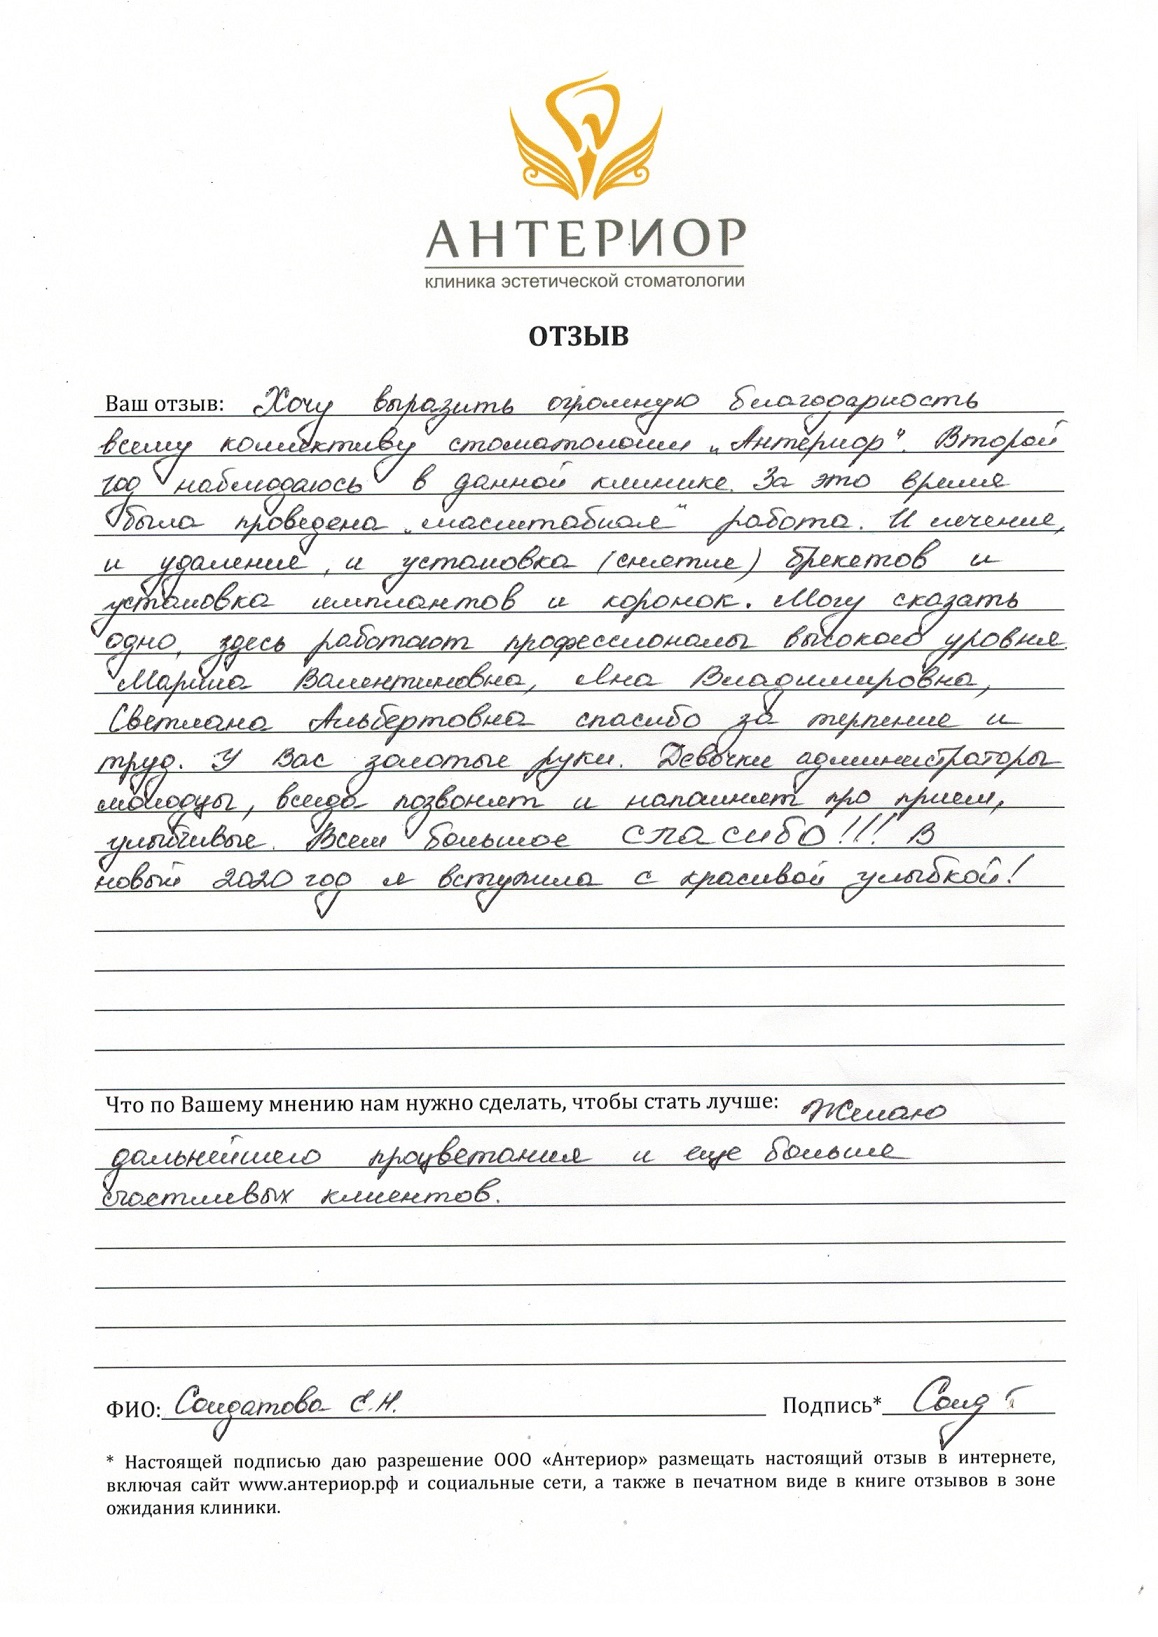 АНТЕРИОР
клиника эстетической стоматологии
ОТЗЫВ
Ваш отзыв: Хочу выразить огромную благодарность
всему коллективу стоматологии „Антериор". Второй
год наблюдаюсь в данной клинике. За это время
была проведена „масштабная" работа. И лечение,
и удаление, и установка (снятие) брекетов и
установка имплантов и коронок. Могу сказать
одно, здесь работают профессионалы высокого уровня.
Марина Валентиновна, Яна Владимировна,
Светлана Альбертовна спасибо за терпение и
труд. У Вас золотые руки. Девочки администраторы
молодцы, всегда позвонят и напомнят про прием,
улыбчивые. Всем большое спасибо!!! В
новый 2020 год я вступила с красивой улыбкой!
Что по Вашему мнению нам нужно сделать, чтобы стать лучше: Желаю
дальнейшего процветания и еще больше
счастливых клиентов.
ФИО: Солдатова Е.Н. Подпись* Солд
* Настоящей подписью даю разрешение ООО «Антериор» размещать настоящий отзыв в интернете,
включая сайт www.антериор.рф и социальные сети, а также в печатном виде в книге отзывов в зоне
ожидания клиники.